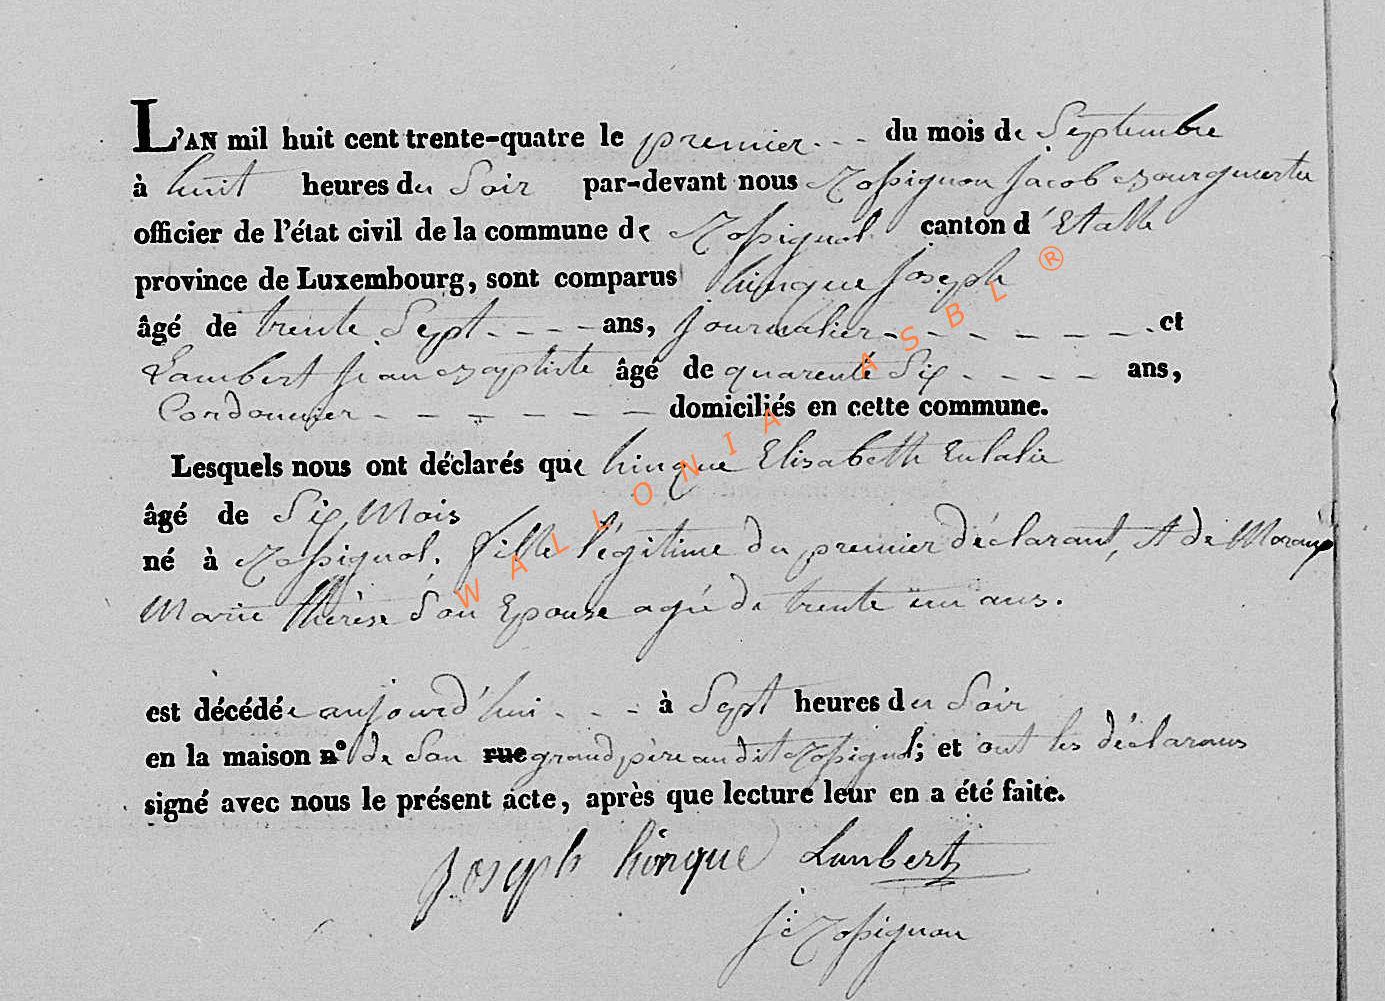 L'AN mil huit cent trente-quatre le premier - - - du mois de Septembre
à huit heures du Soir par-devant nous Rossignon Jacob Bourgmestre
officier de l'état civil de la commune de Rossignol canton d'Etalle
province de Luxembourg, sont comparus hinque Joseph
âgé de trente Sept - - - - ans, Journalier - - - - - - - et
Lambert Jean Baptiste âgé de quarente Six - - - - ans,
Cordonnier - - - - - - - domiciliés en cette commune.
Lesquels nous ont déclarés que hinque Elisabeth Eulalie
âgé de Six Mois
né à Rossignol. fille légitime du premier déclarant, et de
Marie thérèse Son Epouse agée de trente un ans.
est décédée aujourd'hui - - - à Sept heures du Soir
en la maison n° de Son rue grand père au dit Rossignol; et ont les déclarans
signé avec nous le présent acte, après que lecture leur en a été faite.
Joseph hinque Lambert
Rossignon
WALLONIA ASBL ®